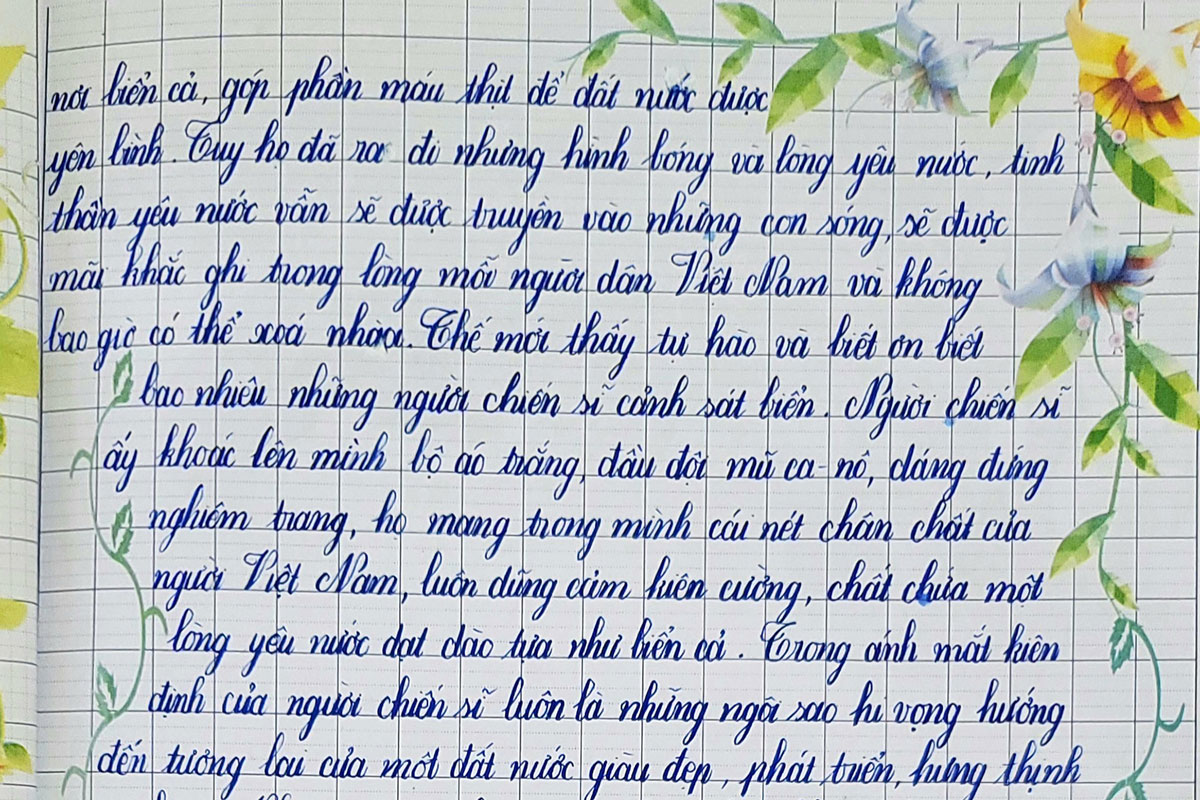 nơi biển cả, góp phần máu thịt để đất nước được
yên bình. Tuy họ đã ra đi nhưng hình bóng và lòng yêu nước, tinh
thần yêu nước vẫn sẽ được truyền vào những con sóng, sẽ được
mãi khắc ghi trong lòng mỗi người dân Việt Nam và không
bao giờ có thể xoá nhòa. Thế mới thấy tự hào và biết ơn biết
bao nhiêu những người chiến sĩ cảnh sát biển. Người chiến sĩ
ấy khoác lên mình bộ áo trắng, đầu đội mũ ca-nô, dáng đứng
nghiêm trang, họ mang trong mình cái nét chân chất của
người Việt Nam, luôn dũng cảm kiên cường, chất chứa một
lòng yêu nước dạt dào tựa như biển cả. Trong ánh mắt kiên
định của người chiến sĩ luôn là những ngôi sao hi vọng hướng
đến tương lai của một đất nước giàu đẹp, phát triển, hưng thịnh